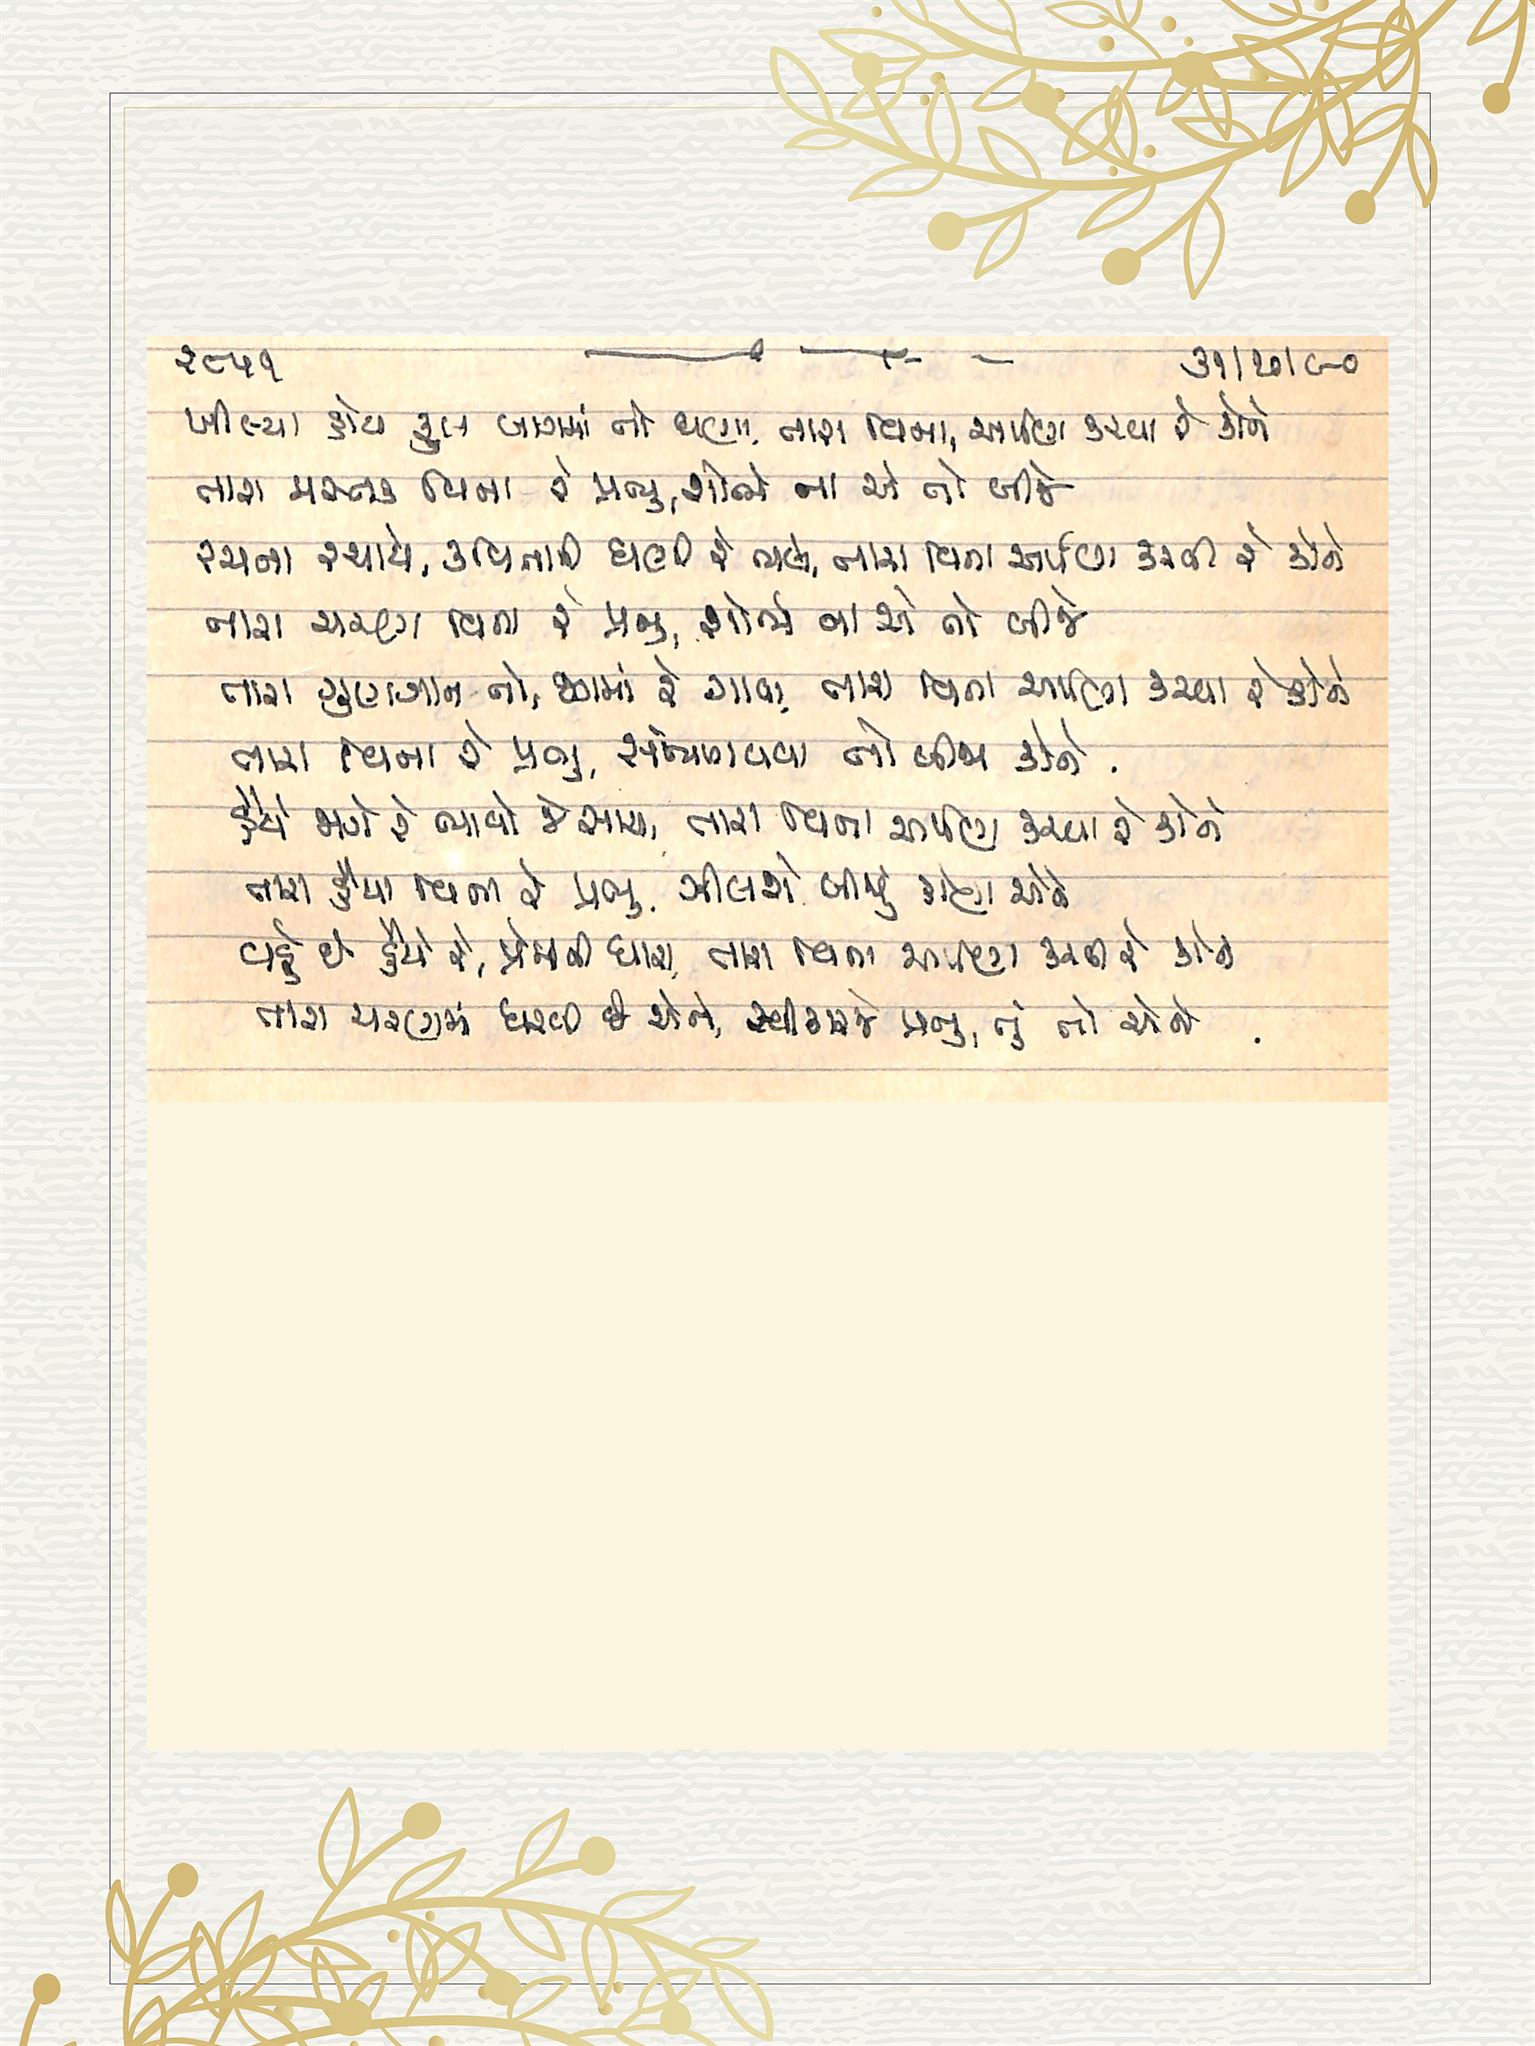 ૨૯૫૧ ૩૧/૧૦/૯૦
ખીલ્યા હોય ફુલ બાગમાં તો ઘણા, તારા વિના, અર્પણ કરવા રે કોને
તારા મસ્તક વિના રે પ્રભુ, શોભે ના એ તો બીજે
રચના રચાયે, કવિતાની ઘણી રે ભલે, તારા વિના અર્પણ કરવી રે કોને
તારા ચરણ વિના રે પ્રભુ, શોભે ના એ તો બીજે
તારા ગુણગાન તો, છે રે ગાવા, તારા વિના અર્પણ કરવા રે કોને
તારા વિના રે પ્રભુ, સંભળાવવા તો બીજા કોને.
હૈયે જાગે રે ભાવો જે સારા, તારા વિના અર્પણ કરવા રે કોને
તારા હૈયા વિના રે પ્રભુ, ઝીલશે બીજું કોણ એને
વહે છે હૈયે રે, પ્રેમની ધારા, તારા વિના અર્પણ કરવી રે કોને
તારા ચરણમાં ધરવી છે એને, સ્વીકારજે પ્રભુ, તું તો એને.